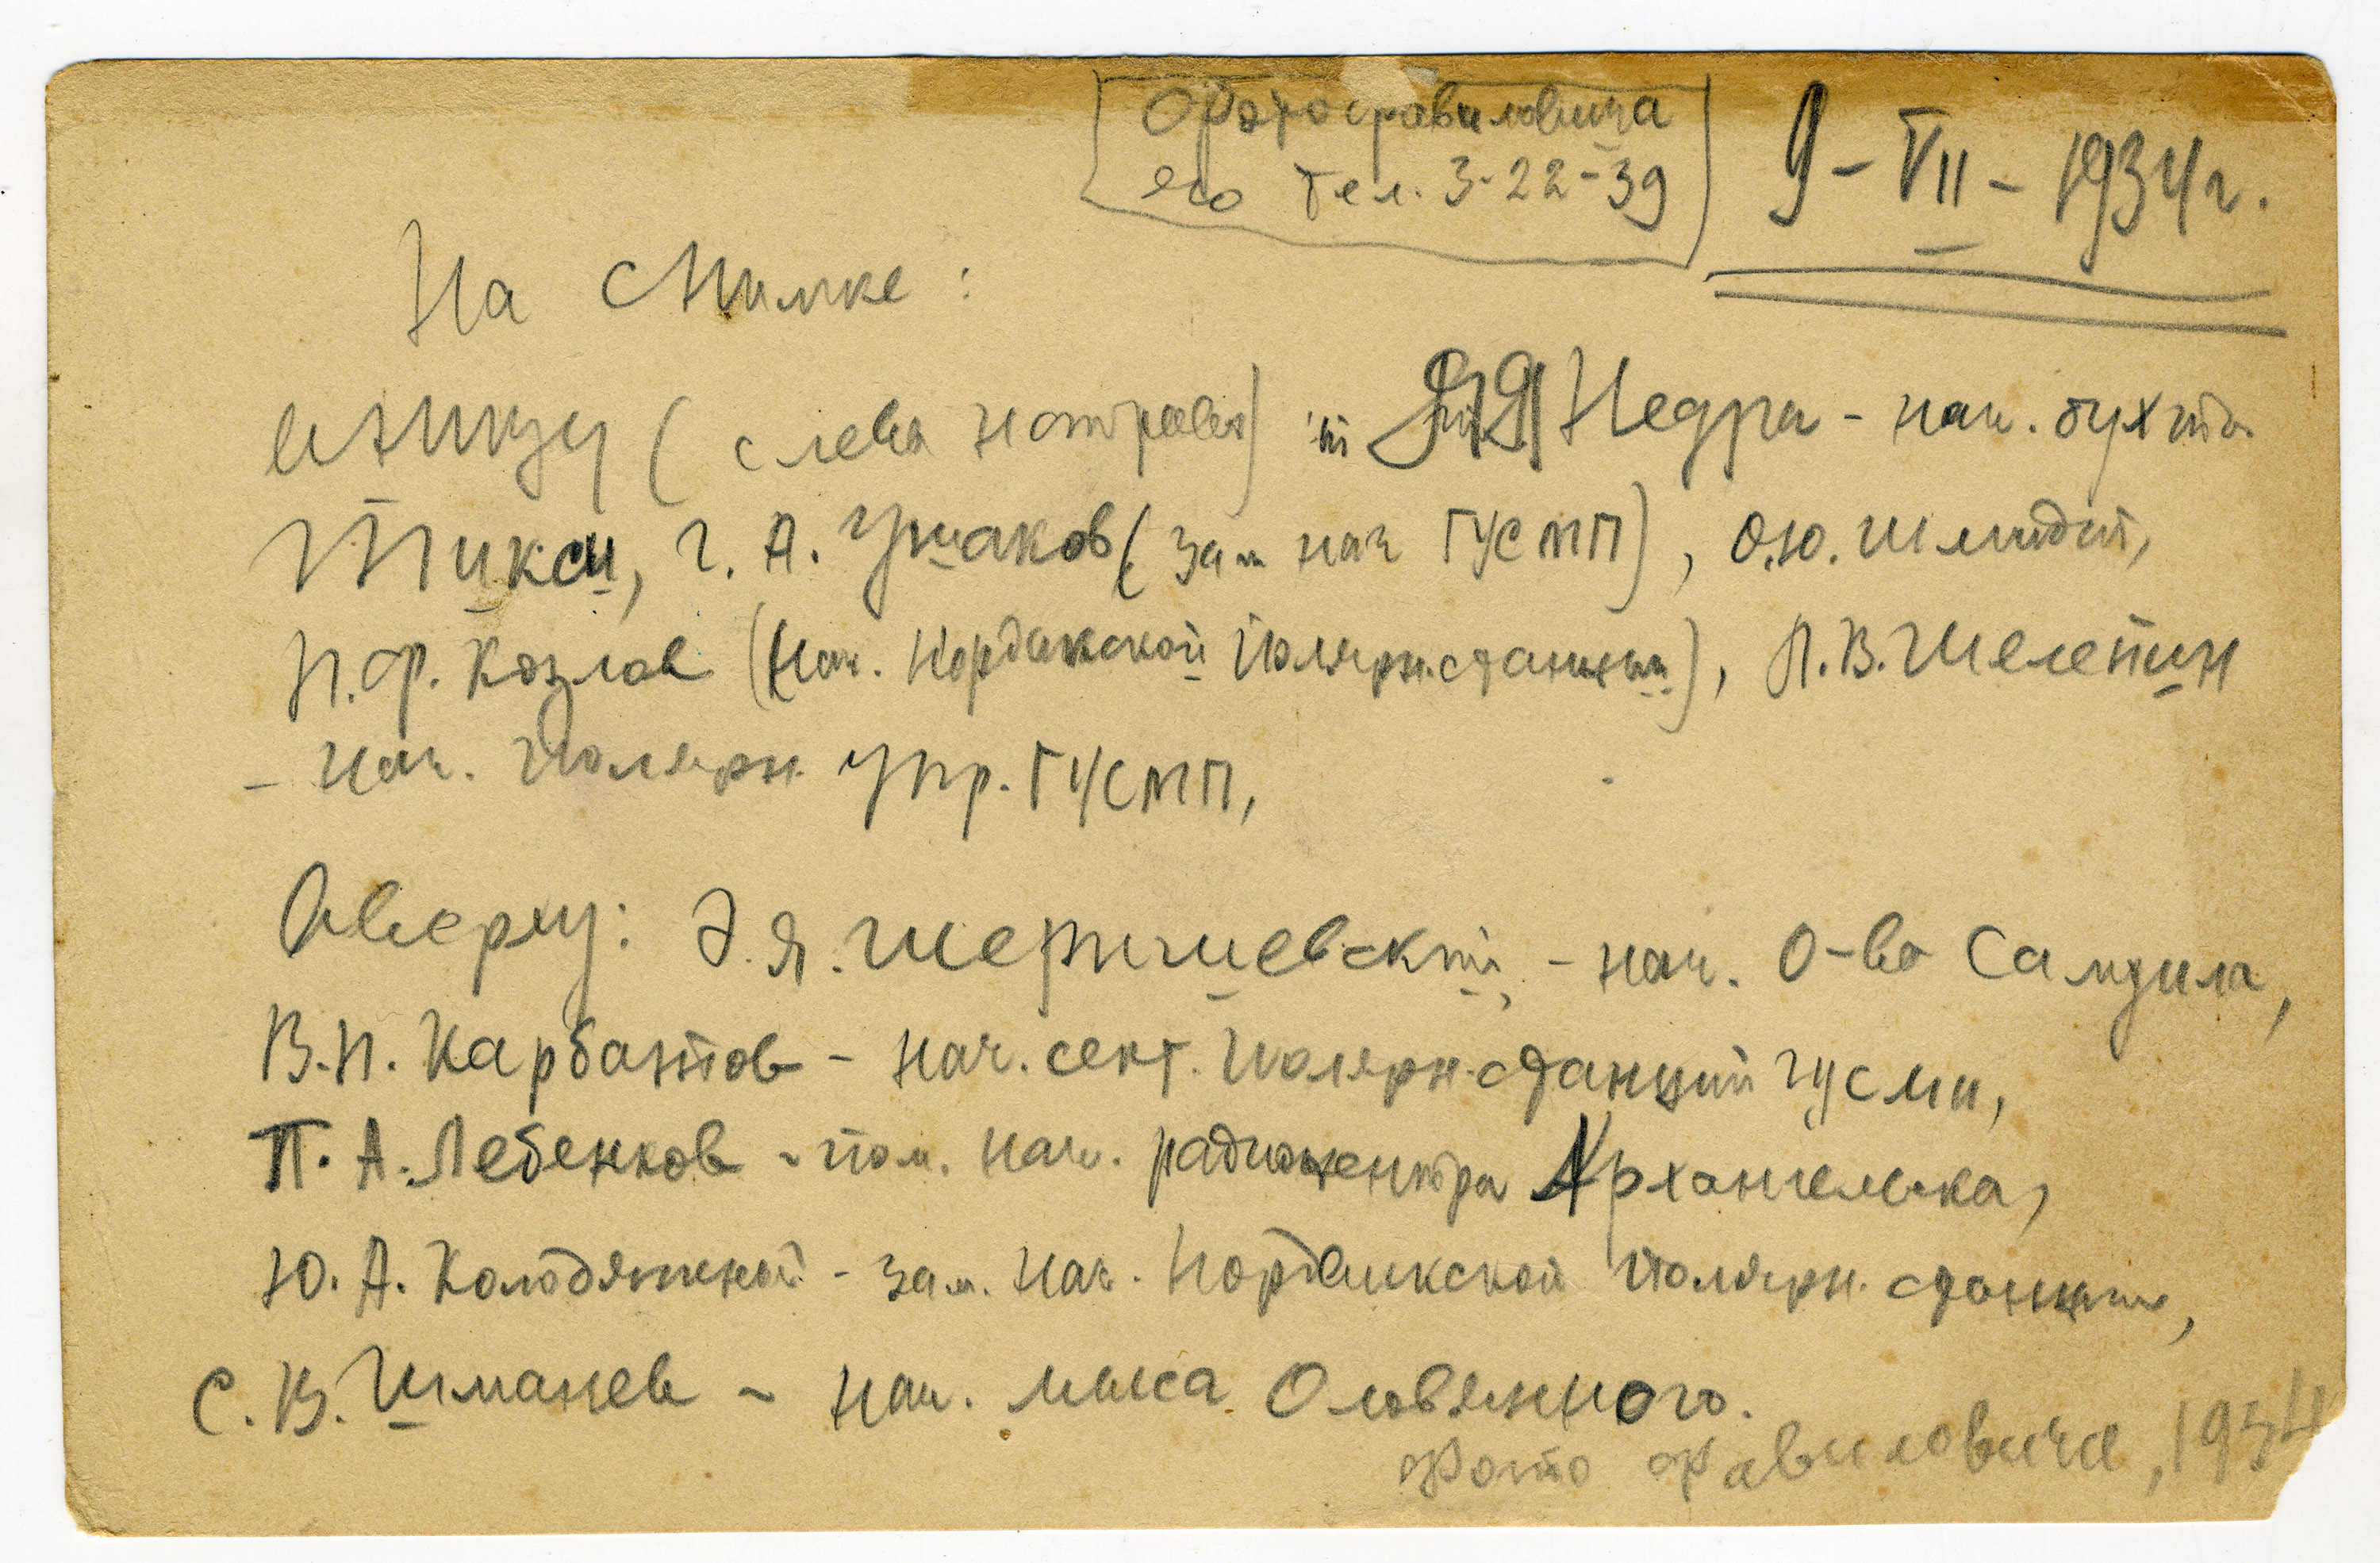 Фото Гравиловича
его тел. 3-22-39
9-VII-1934г.
На снимке:
внизу (слева направо) Недра - нач. бухты
Тикси, Г. А. Ушаков (зам нач ГУСМП), О.Ю. Шмидт,
П.Ф. Козлов (нач. Нордвикской полярн. станции), Л.В. Шелепин
- нач. полярн. упр. ГУСМП,
вверху: Э.Я. - нач. о-ва Самуила,
В.П. Карбатов - нач. сект. полярн. станций ГУСМП,
П. А. Лебенков - пом. нач. радиоцентра Архангельска,
Ю. А. Колодяжный - зам. нач. Нордвикской полярн. станции,
С. В. Шманев - нач. мыса Оловянного.
Фото 1934